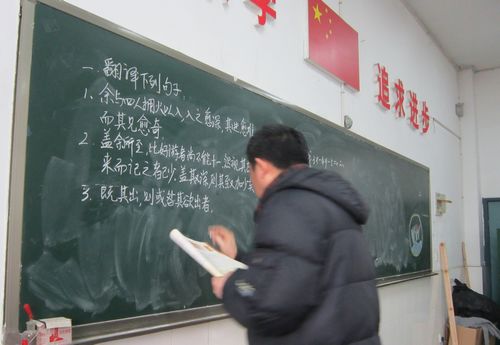 学
追求进步
一 翻译下列句子
1、余与四人拥火以入，入之愈深，其进愈难
而其见愈奇。
2、盖余所至，比好游者尚不能十一，然视其
来而记之者已少。盖其又深，则其至又加少
3、既其出，则或咎其欲出者。